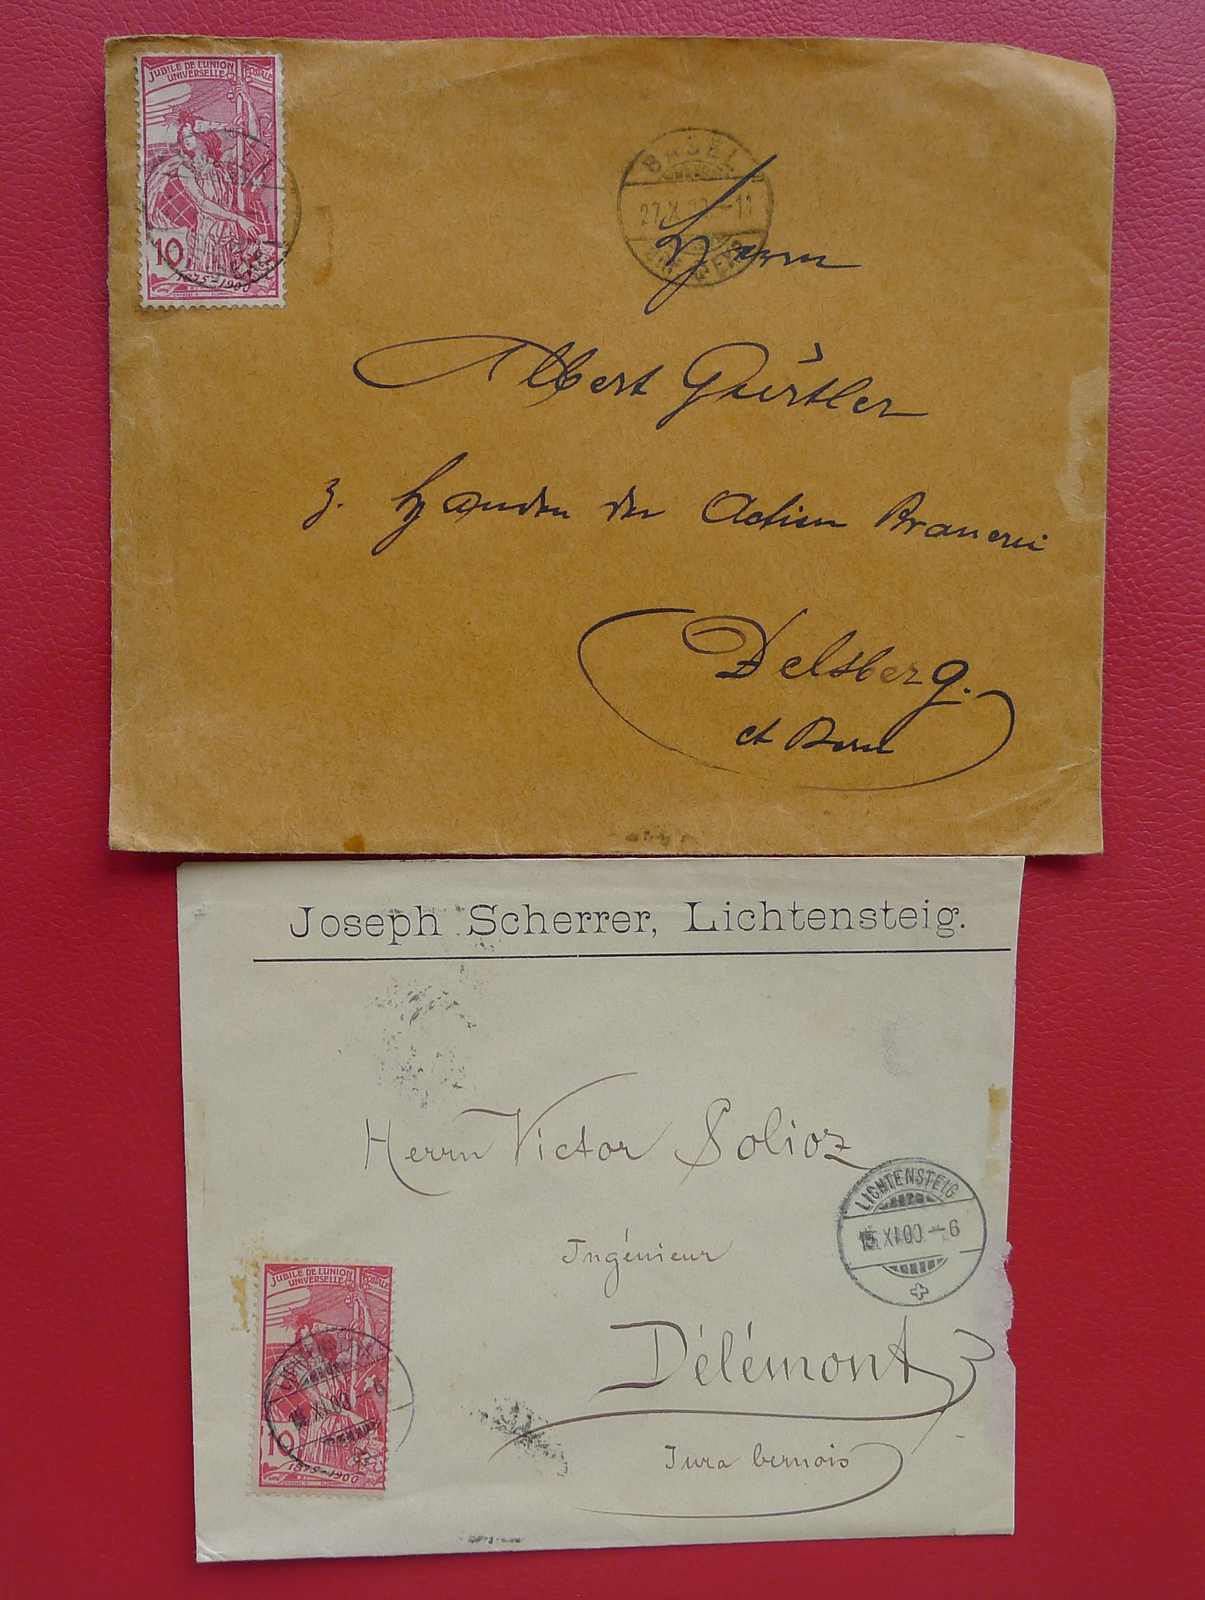 JUBILÉ DE L'UNION
UNIVERSELLE
10
1875-1900
BASEL
27.X.
-11
Herrn
Albert Gürtler
z. Handen der Actien Brauerei
Delsberg.
ct Bern
Joseph Scherrer, Lichtensteig.
Herrn Victor Solioz
LICHTENSTEIG
15.XI.00.-6
Ingénieur
Délémont
Jura bernois
JUBILÉ DE L'UNION
UNIVERSELLE
15.XI.00.-6
10
1875-1900